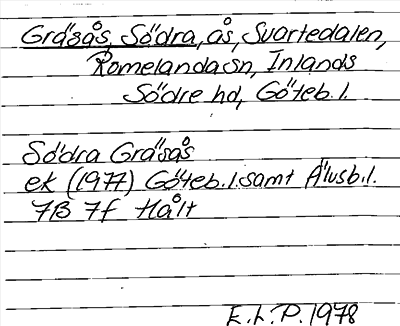 Gräsås, Södra, ås, Svartedalen,
Romelanda sn, Inlands
Södre hd, Göteb. l.
Södra Gräsås
ek (1977) Göteb. l. samt Älvsb. l.
7B 7f Hålt
E. L. P. 1978